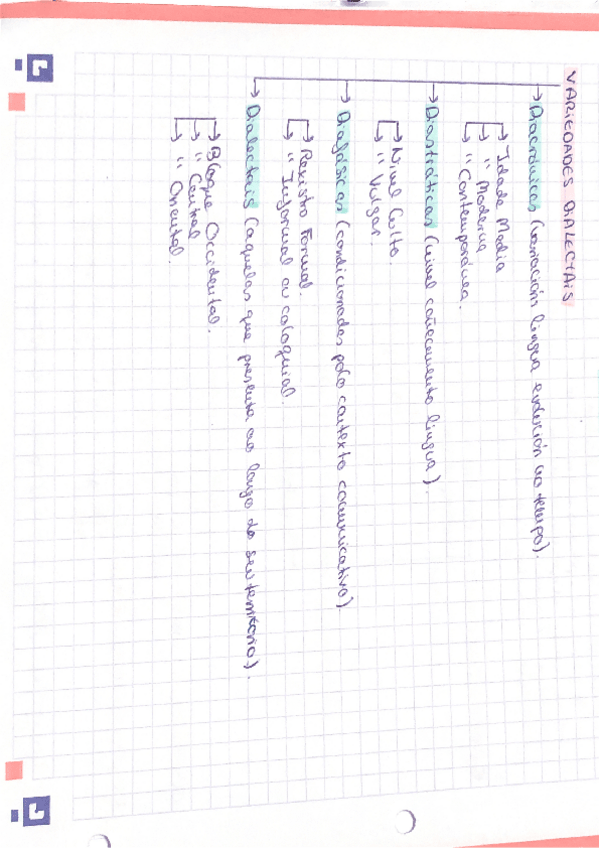 VARIEDADES DIALECTAIS
→ Diacrónicas (variación lingua evolución ao tempo).
→ Idade Media
→ " Moderna
→ " Contemporánea.
→ Diastráticas (nivel coñecemento lingua).
→ Nivel Culto.
→ " Vulgar.
→ Diafásicas (condicionadas polo contexto comunicativo)
→ Rexistro Formal.
→ " Informal ou coloquial.
→ Dialectais (aquelas que presenta ao longo do seu territorio).
→ Bloque Occidental.
→ " Central
→ " Oriental.